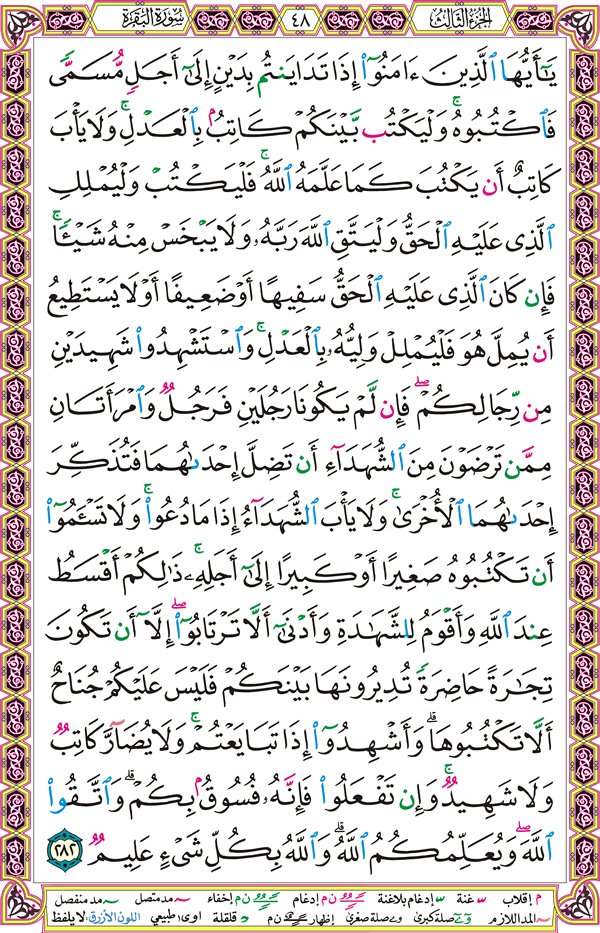 الجزء الثالث ٤٨ سورة البقرة
يَٰٓأَيُّهَا ٱلَّذِينَ ءَامَنُوٓا۟ إِذَا تَدَايَنتُم بِدَيْنٍ إِلَىٰٓ أَجَلٍ مُّسَمًّى
فَٱكْتُبُوهُ ۚ وَلْيَكْتُب بَّيْنَكُمْ كَاتِبٌۢ بِٱلْعَدْلِ ۚ وَلَا يَأْبَ
كَاتِبٌ أَن يَكْتُبَ كَمَا عَلَّمَهُ ٱللَّهُ ۚ فَلْيَكْتُبْ وَلْيُمْلِلِ
ٱلَّذِى عَلَيْهِ ٱلْحَقُّ وَلْيَتَّقِ ٱللَّهَ رَبَّهُۥ وَلَا يَبْخَسْ مِنْهُ شَيْـًٔا ۚ
فَإِن كَانَ ٱلَّذِى عَلَيْهِ ٱلْحَقُّ سَفِيهًا أَوْ ضَعِيفًا أَوْ لَا يَسْتَطِيعُ
أَن يُمِلَّ هُوَ فَلْيُمْلِلْ وَلِيُّهُۥ بِٱلْعَدْلِ ۚ وَٱسْتَشْهِدُوا۟ شَهِيدَيْنِ
مِن رِّجَالِكُمْ ۖ فَإِن لَّمْ يَكُونَا رَجُلَيْنِ فَرَجُلٌ وَٱمْرَأَتَانِ
مِمَّن تَرْضَوْنَ مِنَ ٱلشُّهَدَآءِ أَن تَضِلَّ إِحْدَىٰهُمَا فَتُذَكِّرَ
إِحْدَىٰهُمَا ٱلْأُخْرَىٰ ۚ وَلَا يَأْبَ ٱلشُّهَدَآءُ إِذَا مَا دُعُوا۟ ۚ وَلَا تَسْـَٔمُوٓا۟
أَن تَكْتُبُوهُ صَغِيرًا أَوْ كَبِيرًا إِلَىٰٓ أَجَلِهِۦ ۚ ذَٰلِكُمْ أَقْسَطُ
عِندَ ٱللَّهِ وَأَقْوَمُ لِلشَّهَٰدَةِ وَأَدْنَىٰٓ أَلَّا تَرْتَابُوٓا۟ ۖ إِلَّآ أَن تَكُونَ
تِجَٰرَةً حَاضِرَةً تُدِيرُونَهَا بَيْنَكُمْ فَلَيْسَ عَلَيْكُمْ جُنَاحٌ
أَلَّا تَكْتُبُوهَا ۗ وَأَشْهِدُوٓا۟ إِذَا تَبَايَعْتُمْ ۚ وَلَا يُضَآرَّ كَاتِبٌ
وَلَا شَهِيدٌ ۚ وَإِن تَفْعَلُوا۟ فَإِنَّهُۥ فُسُوقٌۢ بِكُمْ ۗ وَٱتَّقُوا۟
ٱللَّهَ ۖ وَيُعَلِّمُكُمُ ٱللَّهُ ۗ وَٱللَّهُ بِكُلِّ شَىْءٍ عَلِيمٌ ٢٨٢
م إقلاب غنة إدغام بلاغنة ن م إدغام ن م إخفاء مد متصل مد منفصل
المد اللازم صلة كبرى صلة صغرى إظهار ن م قلقلة اوى: طبيعي اللون الأزرق: لا يلفظ